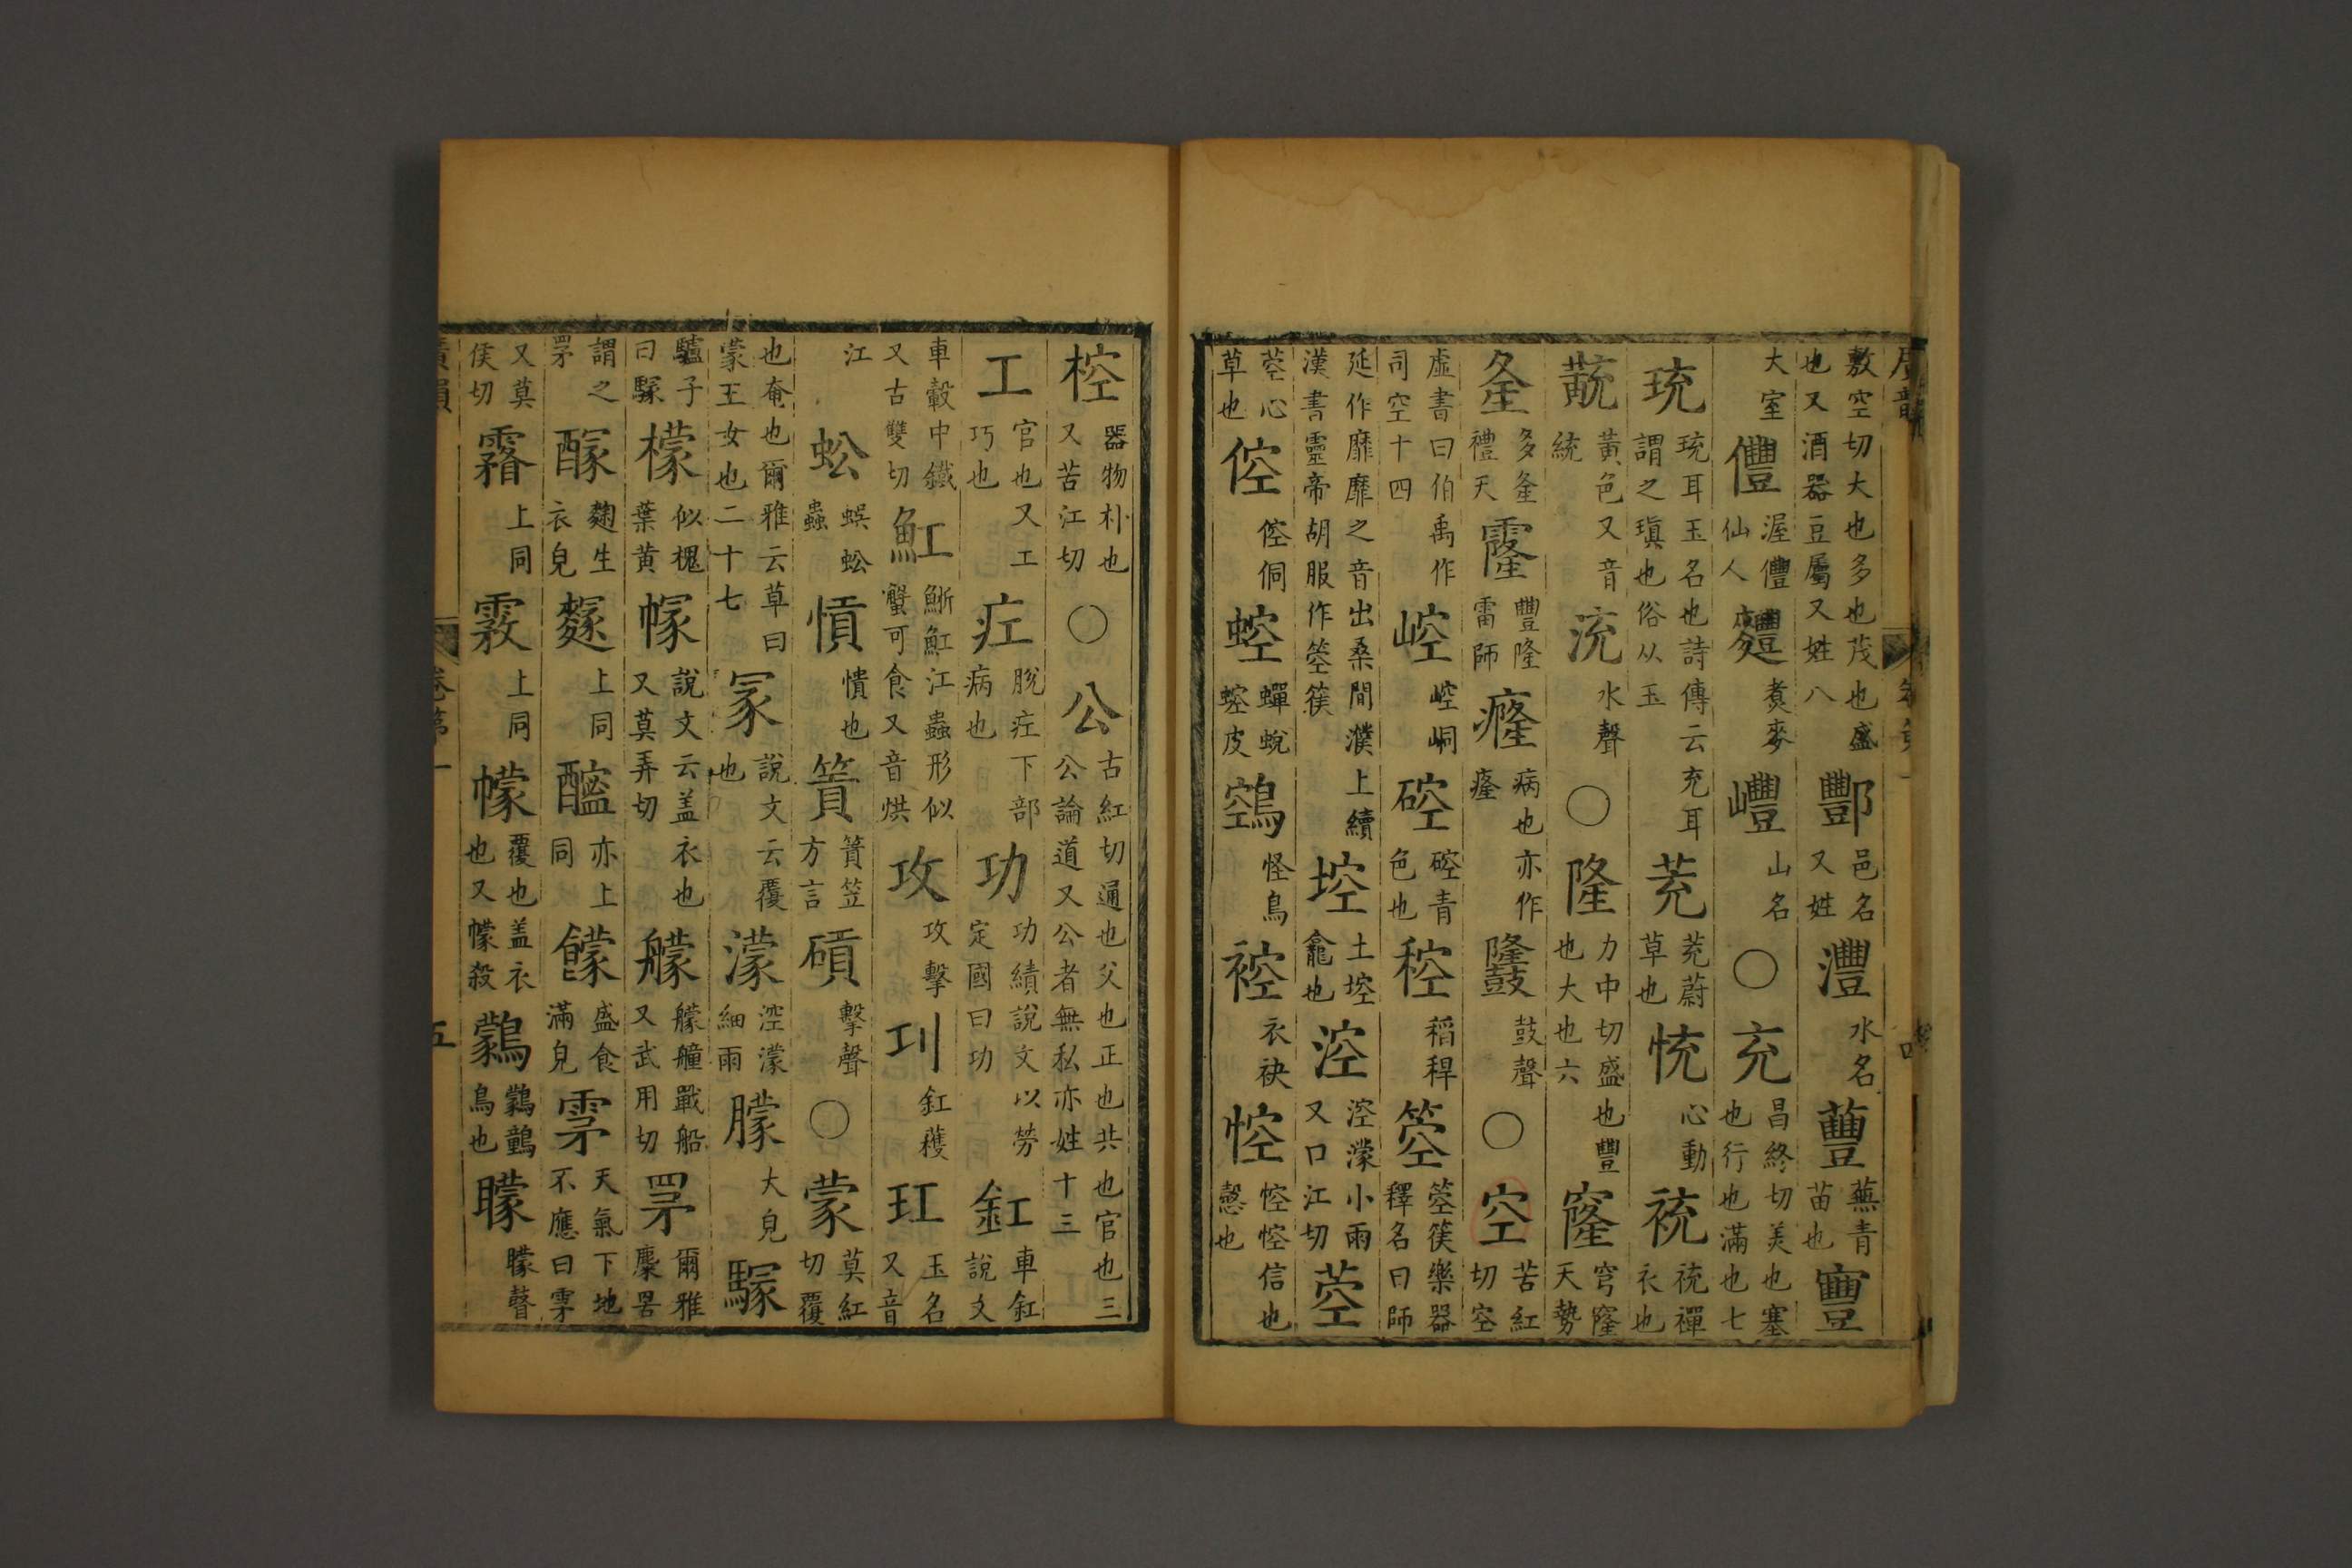 廣韻
敷空切大也多也茂也盛也又酒器豆屬又姓八 酆 邑名又姓 灃 水名 蘴 蕪青苗也 寷
大室 僼 渥僼仙人 麷 煑麥 㠦 山名 ○ 充 昌終切美也塞也行也滿也七
珫 珫耳玉名也詩傳云充耳謂之瑱也俗从玉 茺 茺蔚草也 㤝 心動 䘪 䘪襌衣也
黃色又音統 㳘 水聲 ○ 隆 力中切盛也豐也大也六 窿 穹窿天勢
㚅 多㚅禮天 霳 豐隆雷師 癃 病也亦作𤸇 鼓聲 ○ 空 苦紅切空
虛書曰伯禹作司空十四 崆 崆峒 硿 硿青色也 䅝 稻稈 箜 箜篌樂器釋名曰師
延作靡靡之音出桑間濮上續漢書靈帝胡服作箜篌 埪 土埪龕也 涳 涳濛小雨又口江切 䓚
䓚心草也 倥 倥侗 𧌆 蟬蛻𧌆皮 鵼 怪鳥 衣袂 悾 悾悾信也慤也
椌 器物朴也又苦江切 ○ 公 古紅切通也父也正也共也官也三公論道又公者無私亦姓十三
工 官也又工巧也 疘 脫疘下部病也 功 功績說文以勞定國曰功 釭 車釭說文
車轂中鐵又古雙切 魟 魟江蟲形似蟹可食又音烘 攻 攻擊 㓚 釭穫 玒 玉名又音
江 蚣 蜈蚣蟲 愩 憒也 篢 篢笠方言 碽 擊聲 ○ 蒙 莫紅切覆
也奄也爾雅云草曰蒙王女也二十七 冡 說文云覆也 濛 涳濛細雨 朦 大皃 䮵
驢子曰䮵 檬 似槐葉黃 幏 說文云盖衣也又莫弄切 艨 艨艟戰船又武用切 罞 爾雅麋罟
謂之罞 麴生衣皃 上同 亦上同 饛 盛食滿皃 雺 天氣下地不應曰雺
又莫侯切 霿 上同 霚 上同 幪 覆也盖衣也又幪殺 鸏 鳥也 矇 矇瞽
卷第一 五